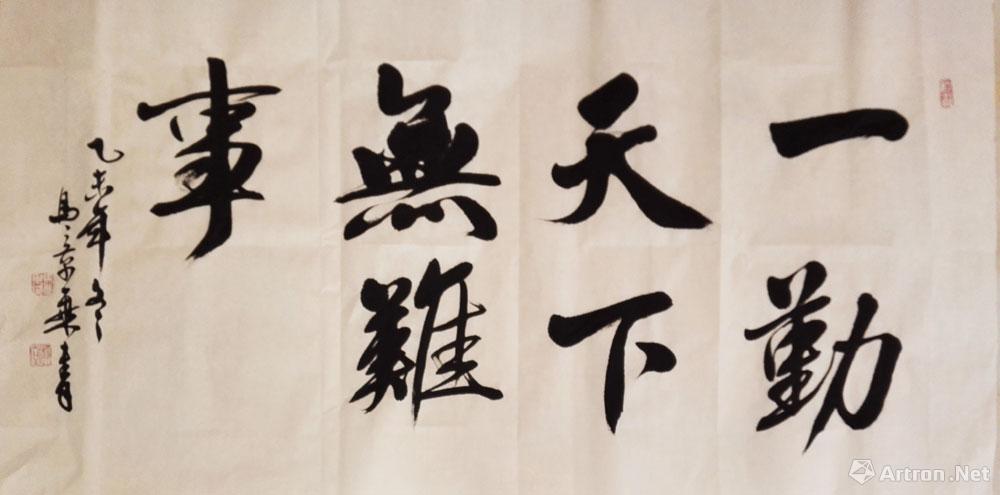 一勤
天下
無難
事
乙未年冬
景乘書
Artron.Net